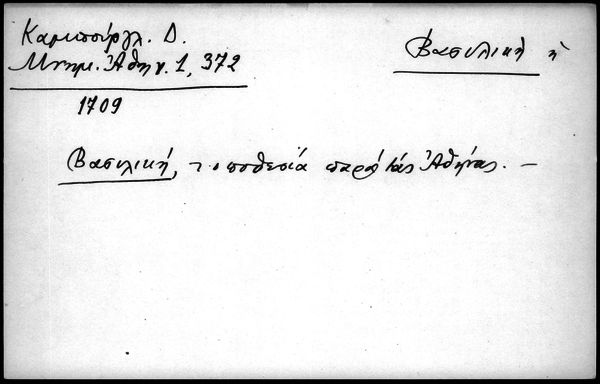 Καμπούρογλ. Δ.
Μνημ. Ἀθην. 1, 372
1709
Βασιλική ἡ
Βασιλική, τοποθεσία παρὰ τὰς Ἀθήνας. –